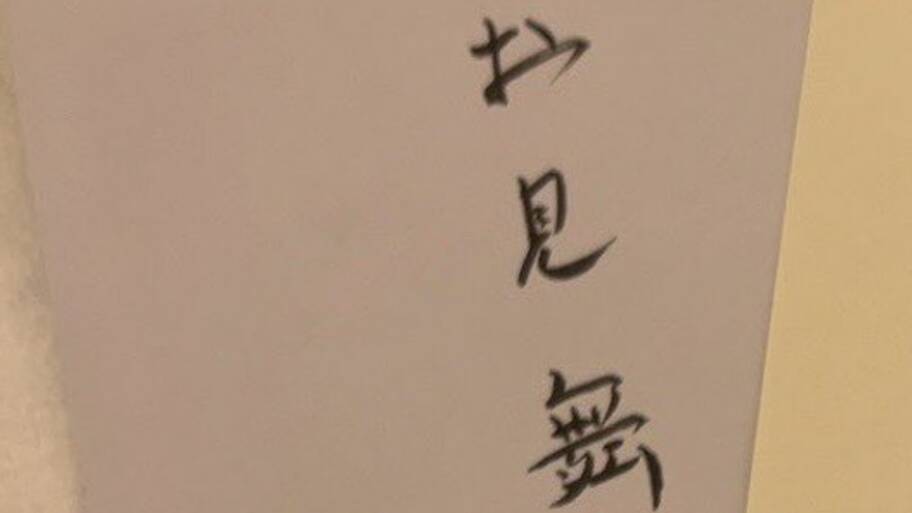 お見舞